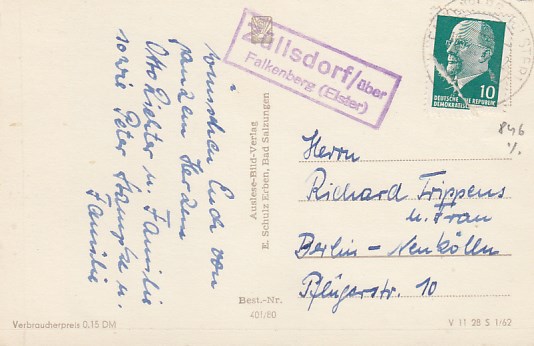 Züllsdorf/über
Falkenberg (Elster)
DEUTSCHE
DEMOKRATISCHE REPUBLIK
10
846
1/.
wünschen Euch von
ganzem Herzen
Otto Richter u. Familie
sowie Peter u.
Familie
Auslese-Bild-Verlag
E. Schulz Erben, Bad Salzungen
Best.-Nr.
401/80
Herrn
Richard Trippens
u. Frau
Berlin-Neukölln
Pflügerstr. 10
Verbraucherpreis 0.15 DM
V 11 28 S 1/62